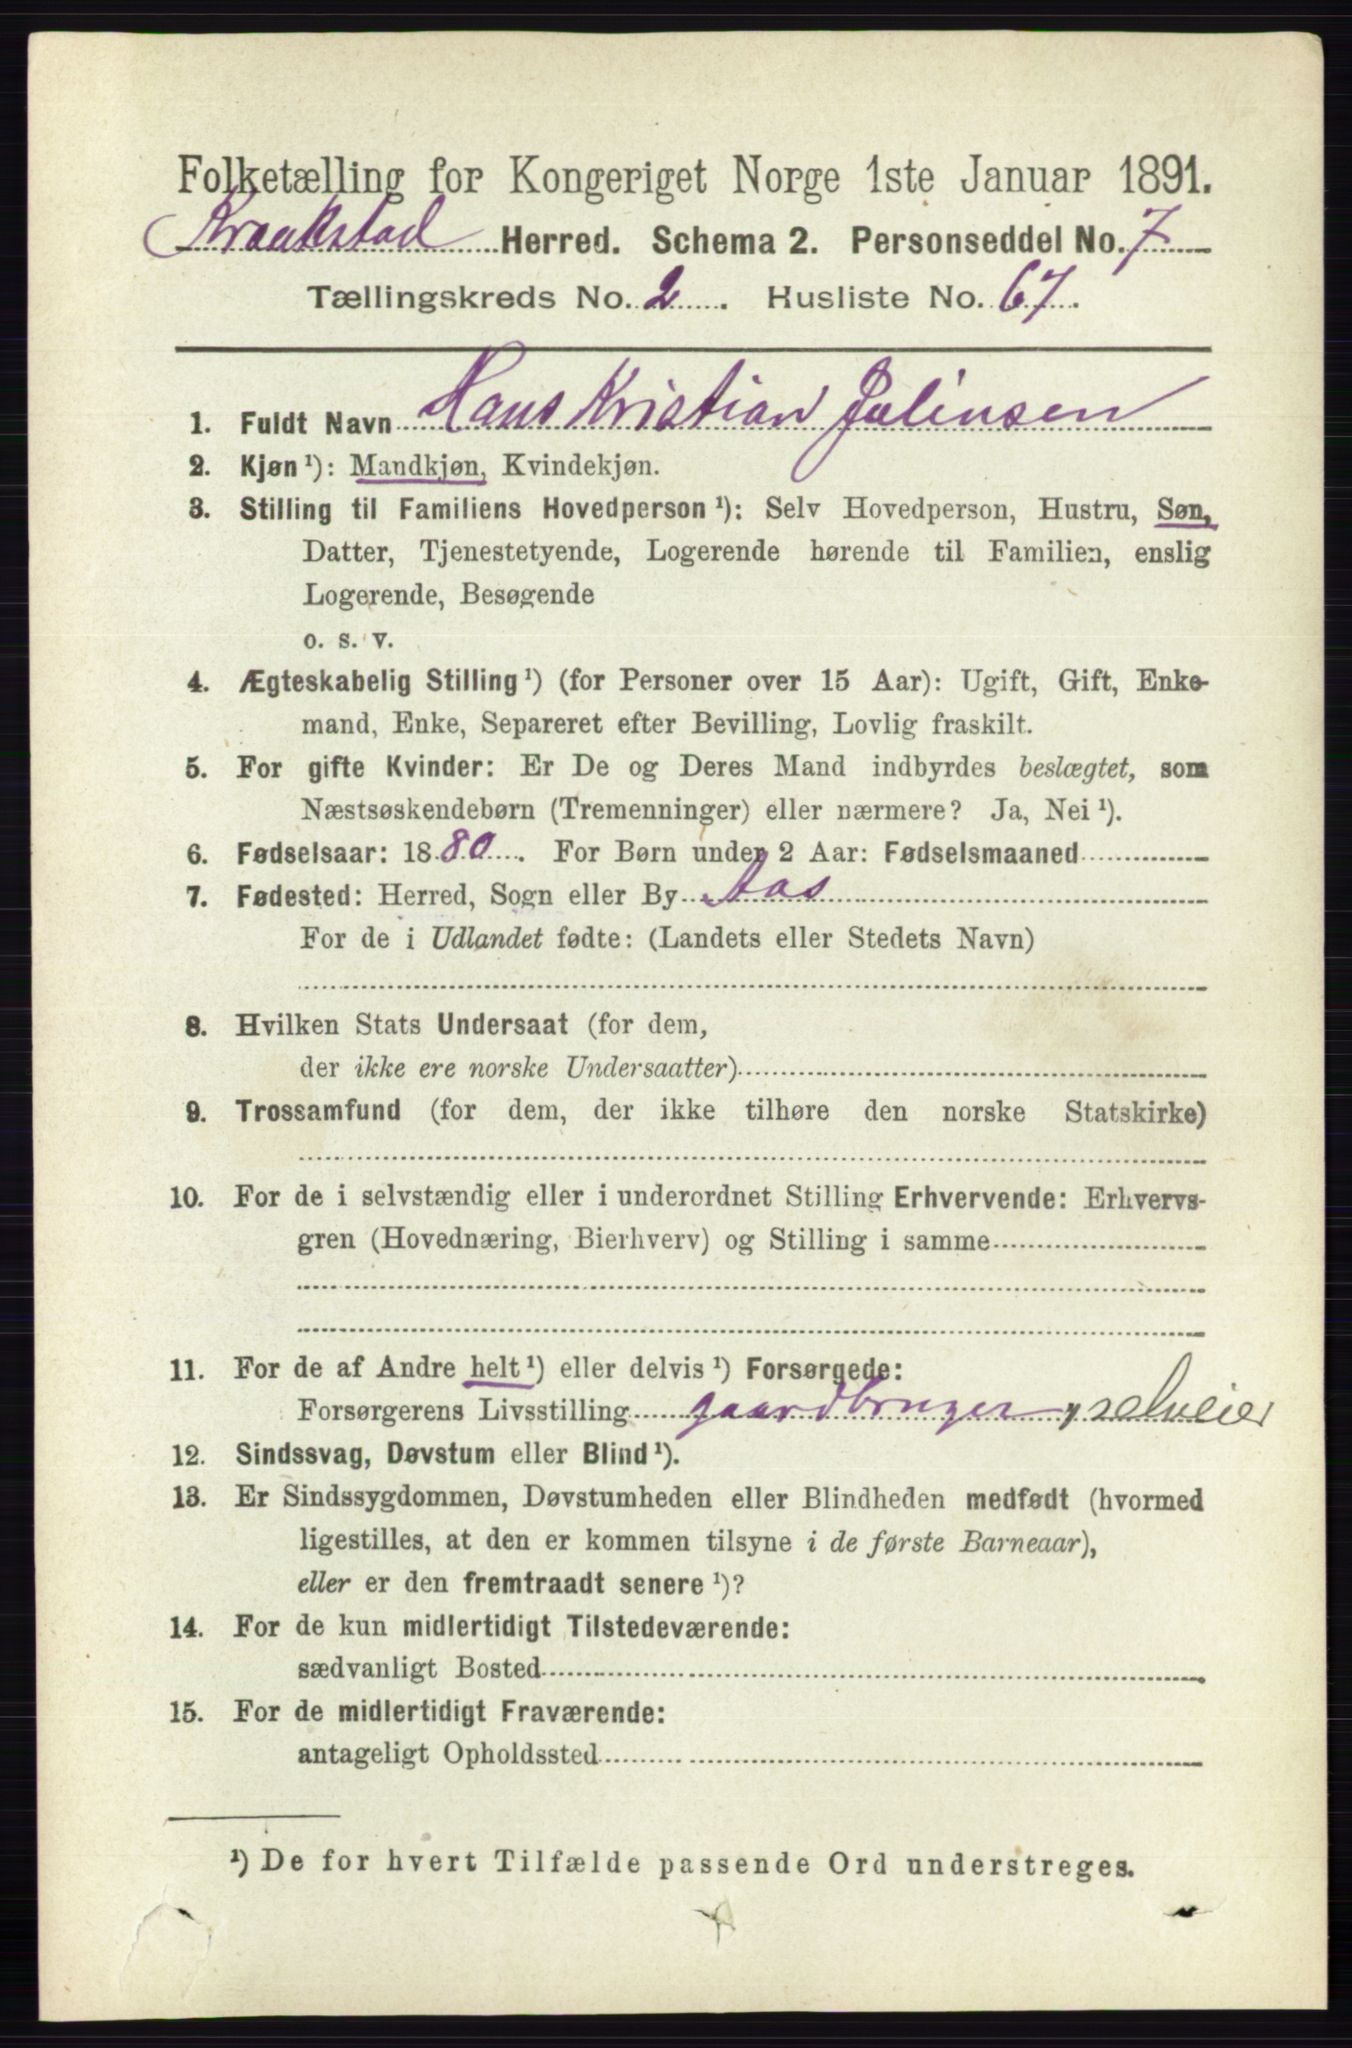 Folketælling for Kongeriget Norge 1ste Januar 1891.
Kraakstad Herred. Schema 2. Personseddel No. 7
Tællingskreds No. 2. Husliste No. 67.
1. Fuldt Navn Hans Kristian Julinsen
2. Kjøn¹): Mandkjøn, Kvindekjøn.
3. Stilling til Familiens Hovedperson¹): Selv Hovedperson, Hustru, Søn,
Datter, Tjenestetyende, Logerende hørende til Familien, enslig
Logerende, Besøgende
o. s. v.
4. Ægteskabelig Stilling¹) (for Personer over 15 Aar): Ugift, Gift, Enke-
mand, Enke, Separeret efter Bevilling, Lovlig fraskilt.
5. For gifte Kvinder: Er De og Deres Mand indbyrdes beslægtet, som
Næstsøskendebørn (Tremenninger) eller nærmere? Ja, Nei¹).
6. Fødselsaar: 1880. For Børn under 2 Aar: Fødselsmaaned
7. Fødested: Herred, Sogn eller By Aas
For de i Udlandet fødte: (Landets eller Stedets Navn)
8. Hvilken Stats Undersaat (for dem,
der ikke ere norske Undersaatter)
9. Trossamfund (for dem, der ikke tilhøre den norske Statskirke)
10. For de i selvstændig eller i underordnet Stilling Erhvervende: Erhvervs-
gren (Hovednæring, Bierhverv) og Stilling i samme
11. For de af Andre helt¹) eller delvis¹) Forsørgede:
Forsørgerens Livsstilling gaardbruger, selveier
12. Sindssvag, Døvstum eller Blind¹).
13. Er Sindssygdommen, Døvstumheden eller Blindheden medfødt (hvormed
ligestilles, at den er kommen tilsyne i de første Barneaar),
eller er den fremtraadt senere¹)?
14. For de kun midlertidigt Tilstedeværende:
sædvanligt Bosted
15. For de midlertidigt Fraværende:
antageligt Opholdssted
¹) De for hvert Tilfælde passende Ord understreges.